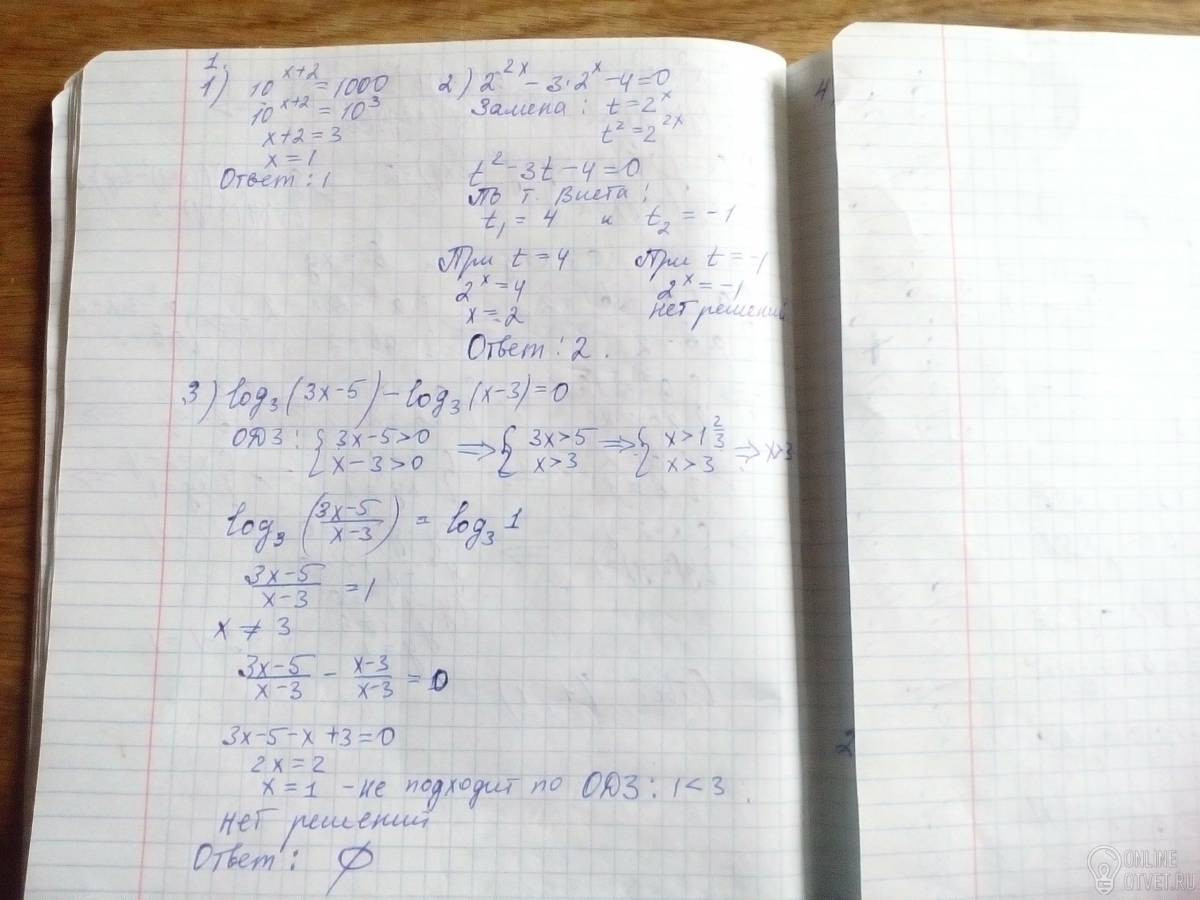 1.
1) 10^(x+2) = 1000
10^(x+2) = 10^3
x+2=3
x=1
Ответ: 1
2) 2^(2x) - 3·2^x - 4=0
Замена: t=2^x
t^2=2^(2x)
t^2-3t-4=0
По т. Виета:
t_1=4 и t_2=-1
При t=4
2^x=4
x=2
При t=-1
2^x=-1
нет решений
Ответ: 2.
3) log_3(3x-5)-log_3(x-3)=0
ОДЗ: {3x-5>0 ⇒ {3x>5 ⇒ {x>1 2/3 ⇒ x>3
x-3>0 x>3 x>3
log_3((3x-5)/(x-3)) = log_3 1
(3x-5)/(x-3) = 1
x ≠ 3
(3x-5)/(x-3) - (x-3)/(x-3) = 0
3x-5-x+3=0
2x=2
x=1 - не подходит по ОДЗ: 1<3.
нет решений
Ответ: ∅
4
2
ONLINE
OTVET.RU